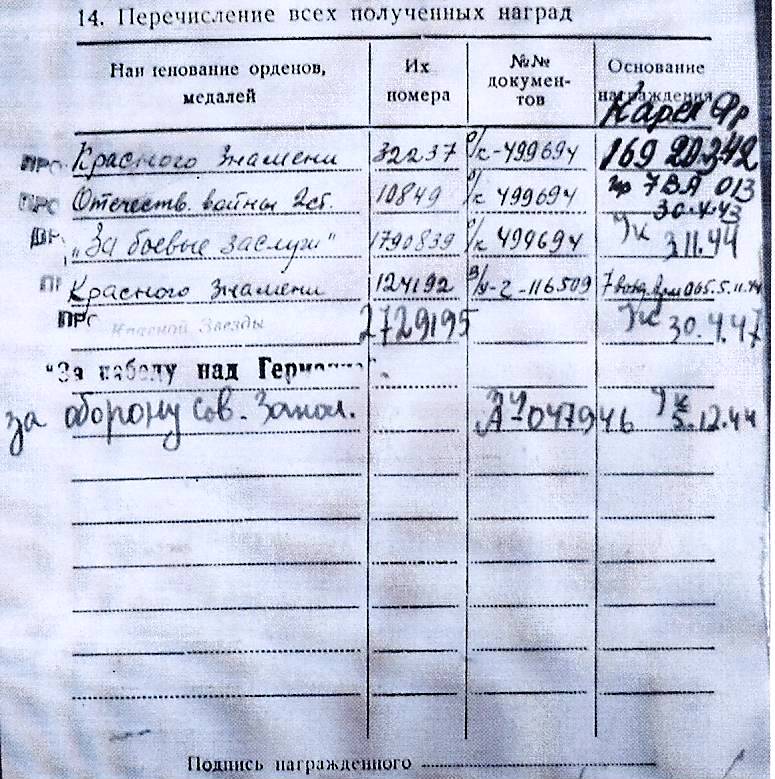 14. Перечисление всех полученных наград
Наименование орденов, медалей
Их номера
№№ документов
Основание награждения
Карел Фр
ПРС Красного Знамени 32237 о/к-499694 169 20342
ПРС Отечеств. войны 2ст. 10849 о/к 499694 пр 7 ВА 013
30.4.43
"За боевые заслуги" 1790839 о/к 499694 Ук 3.11.44
Красного Знамени 124192 -116509 5.11.44
ПРС Красной Звезды 2729195 Ук 30.4.47
"За победу над Германией".
за оборону Сов. Запол. А-047946 Ук 5.12.44
Подпись награжденного